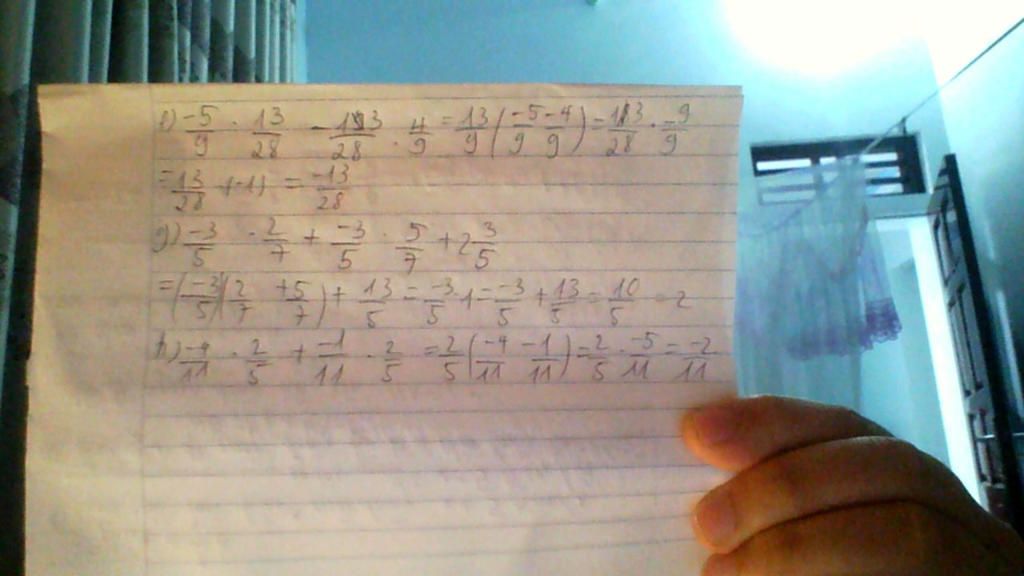 e) -5/9 . 13/28 - 13/28 . 4/9 = 13/9 (-5/9 -4/9) = 13/28 . -9/9
= 13/28 . (-1) = -13/28
g) -3/5 . 2/7 + -3/5 . 5/7 + 2 3/5
= (-3/5)(2/7 + 5/7) + 13/5 = -3/5 . 1 = -3/5 + 13/5 = 10/5 = 2
h) -4/11 . 2/5 + -1/11 . 2/5 = 2/5 (-4/11 -1/11) = 2/5 . -5/11 = -2/11